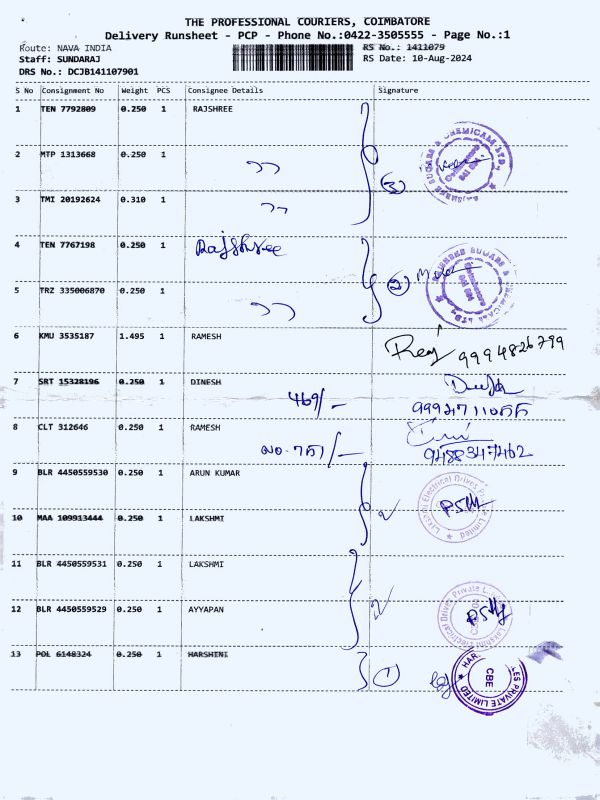 THE PROFESSIONAL COURIERS, COIMBATORE
Delivery Runsheet - PCP - Phone No.:0422-3505555 - Page No.:1
Route: NAVA INDIA
RS No.: 1411079
Staff: SUNDARAJ
RS Date: 10-Aug-2024
DRS No.: DCJB141107901
S No Consignment No Weight PCS Consignee Details Signature
1 TEN 7792809 0.250 1 RAJSHREE
2 MTP 1313668 0.250 1 ,, (3)
3 TMI 20192624 0.310 1 ,,
4 TEN 7767198 0.250 1 Rajshree (2)
5 TRZ 335006870 0.250 1 ,,
6 KMU 3535187 1.495 1 RAMESH 9994826799
7 SRT 15328196 0.250 1 DINESH 469/-
8 CLT 312646 0.250 1 RAMESH 9488347462
9 BLR 4450559530 0.250 1 ARUN KUMAR
10 MAA 109913444 0.250 1 LAKSHMI 2
11 BLR 4450559531 0.250 1 LAKSHMI
12 BLR 4450559529 0.250 1 AYYAPAN 2
13 POL 6148324 0.250 1 HARSHINI 1
CBE